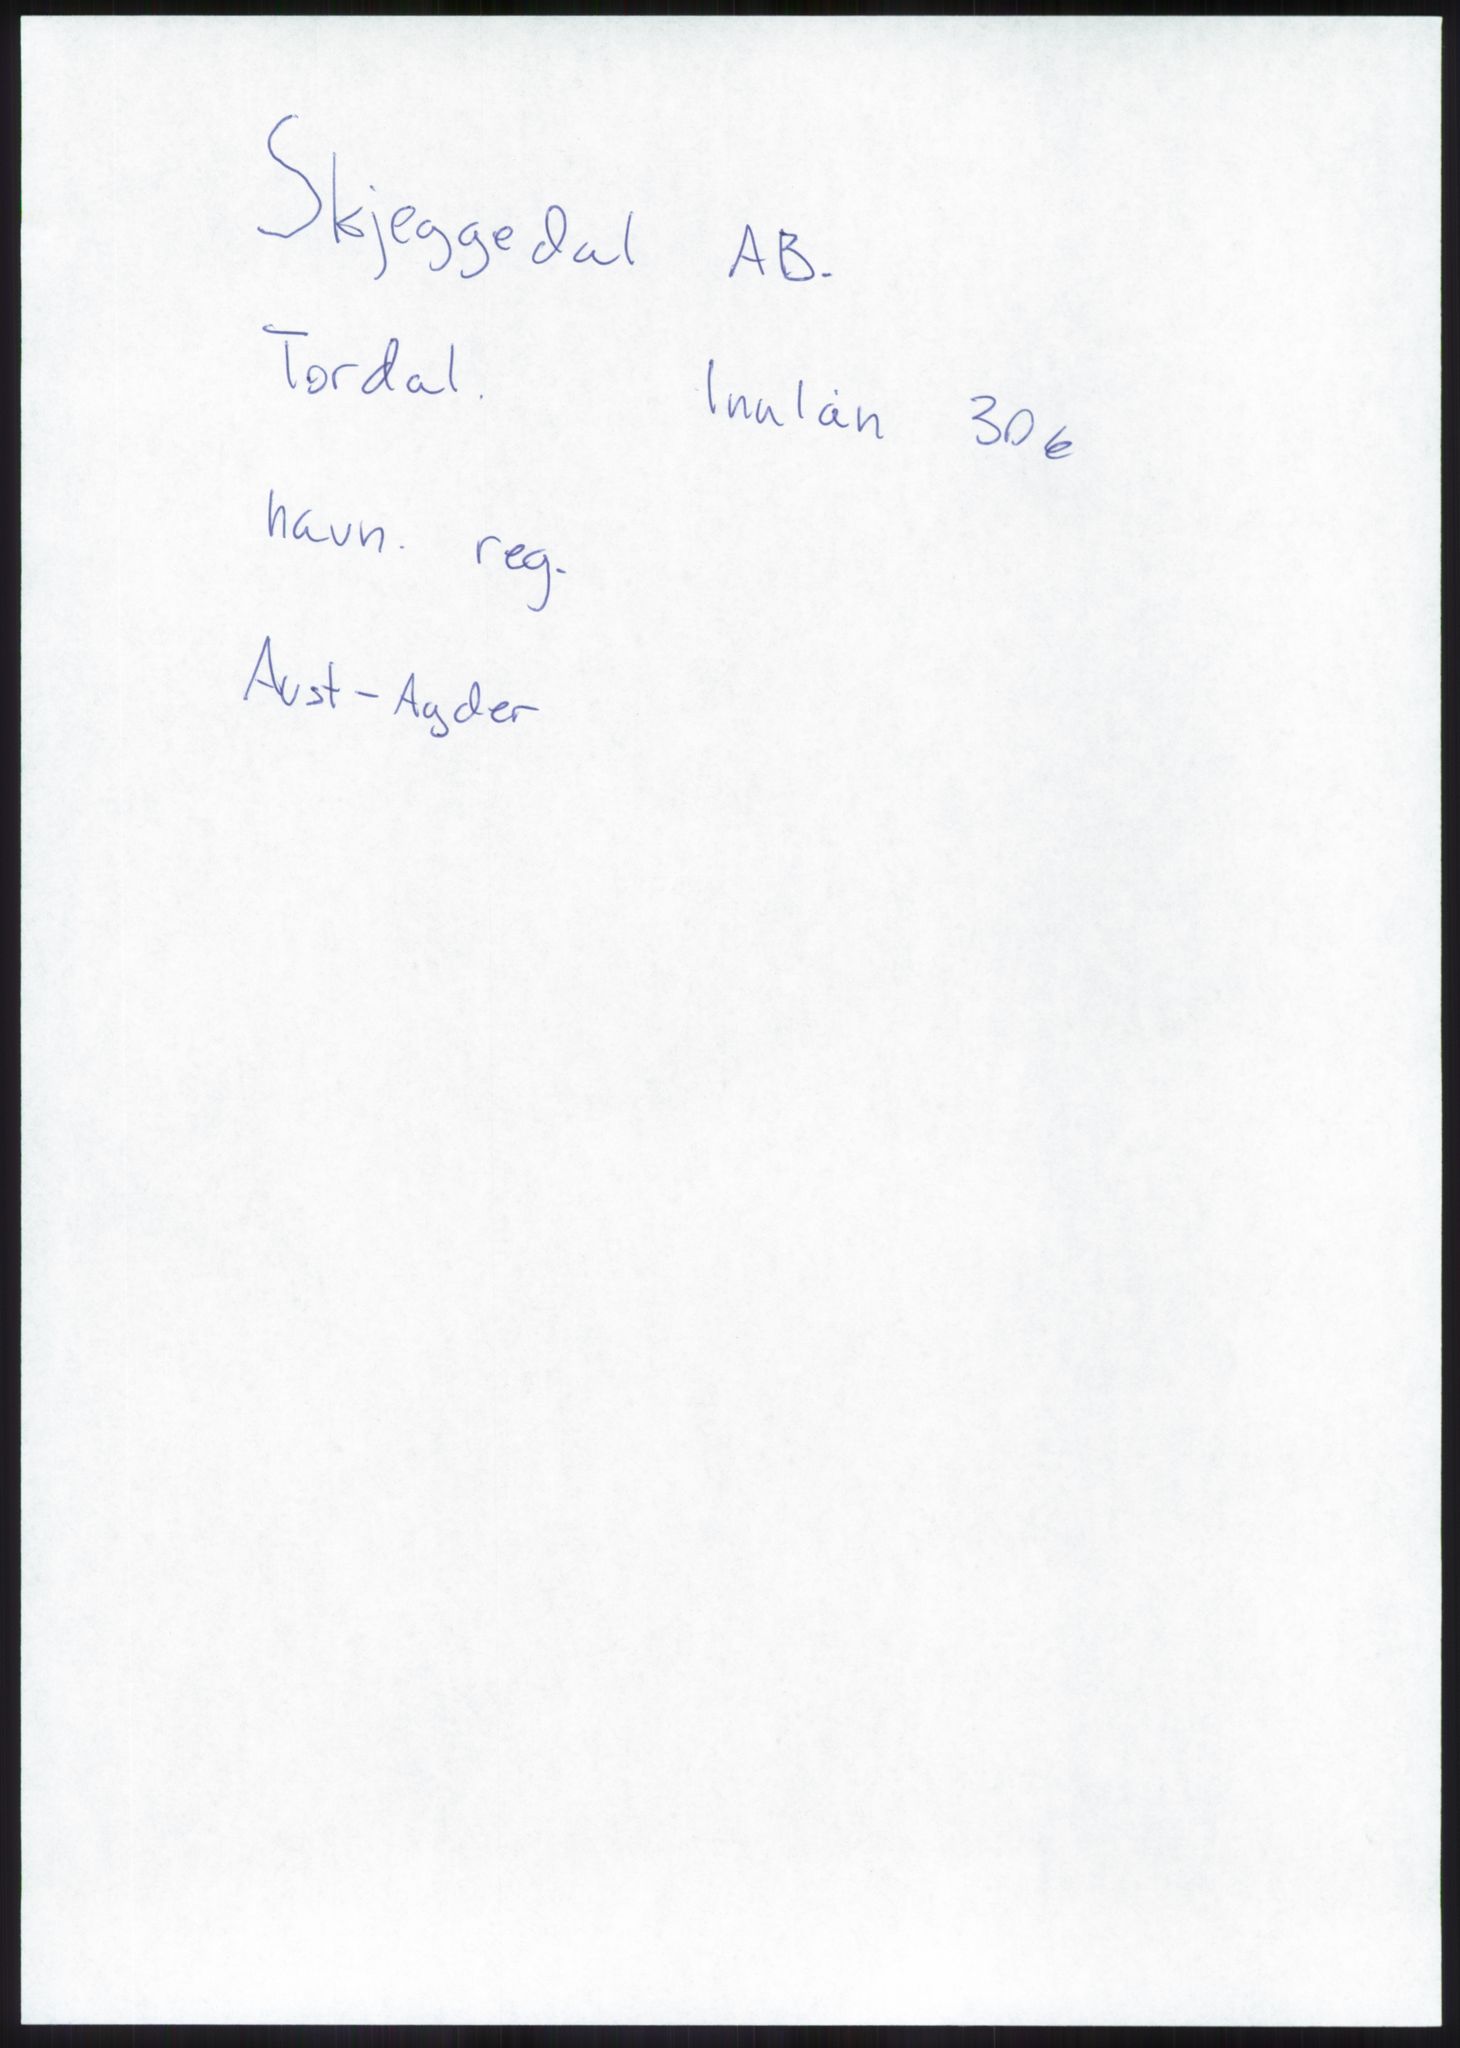 Skjeggedal AB.
Tordal. Innlån 306
havn. reg.
Aust-Agder